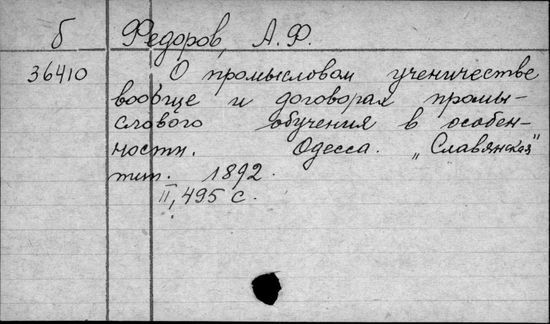 б Федоров, А.Ф.
36410 О промысловом ученичестве
вообще и договорах промы-
слового обучения в особен-
ности. Одесса. „Славянская"
тип. 1892.
II, 495 с.